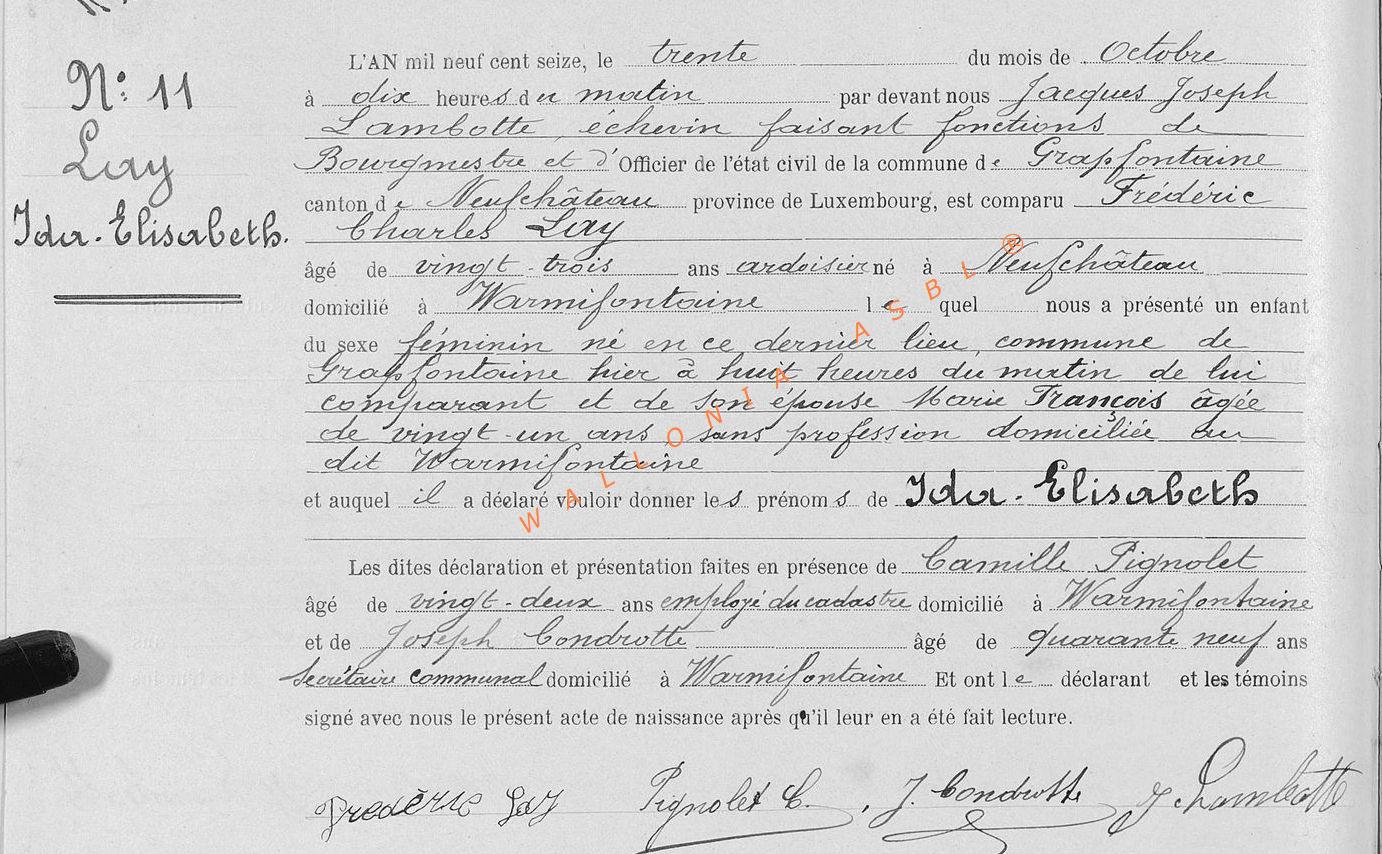 N° 11
Lay
Ida-Elisabeth.
L'AN mil neuf cent seize, le trente du mois de Octobre
à dix heures du matin par devant nous Jacques Joseph
Lambotte, échevin faisant fonctions de
Bourgmestre et d'Officier de l'état civil de la commune de Grapfontaine
canton de Neufchâteau province de Luxembourg, est comparu Frédéric
Charles Lay
âgé de vingt-trois ans ardoisier né à Neufchâteau
domicilié à Warmifontaine lequel nous a présenté un enfant
du sexe féminin né en ce dernier lieu, commune de
Grapfontaine hier à huit heures du matin de lui
comparant et de son épouse Marie François âgée
de vingt-un ans, sans profession domiciliée au
dit Warmifontaine
et auquel il a déclaré vouloir donner les prénoms de Ida-Elisabeth
Les dites déclaration et présentation faites en présence de Camille Pignolet
âgé de vingt-deux ans employé du cadastre domicilié à Warmifontaine
et de Joseph Condrotte âgé de quarante neuf ans
secrétaire communal domicilié à Warmifontaine Et ont le déclarant et les témoins
signé avec nous le présent acte de naissance après qu'il leur en a été fait lecture.
Frédéric Lay Pignolet C. J. Condrotte J. Lambotte
WALLONIA ASBL ®